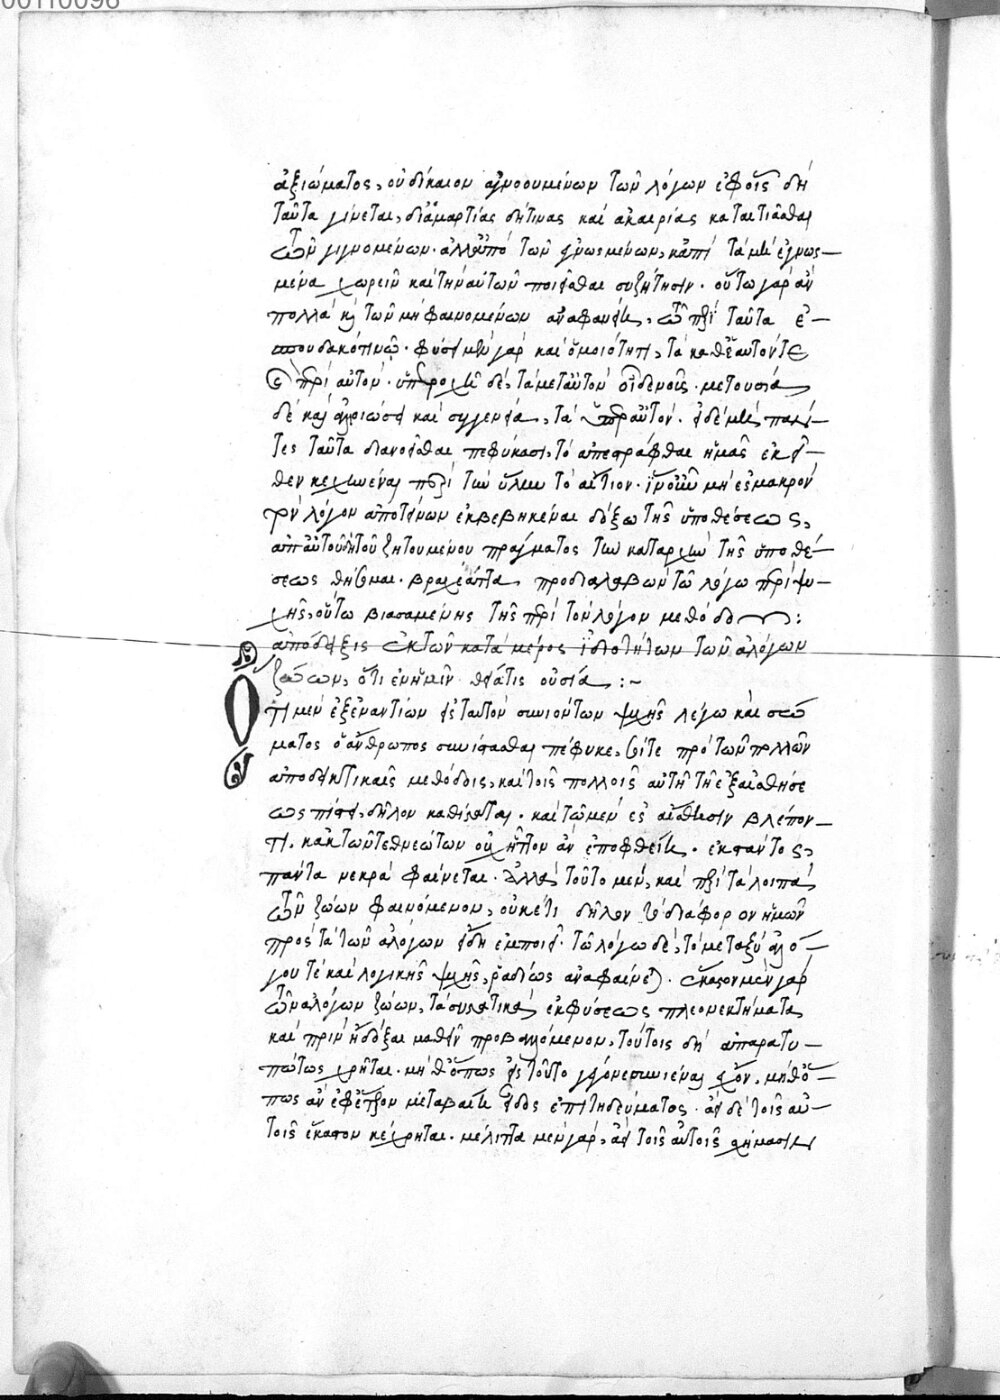 00110096
ἀξιώματος, οὐ δίκαιον ἀγνοουμένων τῶν λόγων ἐφ' οἷς δὴ
ταῦτα γίνεται, διαμαρτίας δή τινας καὶ ἀκαιρίας καταιτιᾶσθαι
τῶν γιγνομένων. ἀλλ' ἀπὸ τῶν ἐγνωσμένων, κἀπὶ τὰ μὴ ἐγνωσ-
μένα χωρεῖν καὶ τὴν αὐτῶν ποιεῖσθαι συζήτησιν. οὕτω γὰρ ἂν
πολλὰ καὶ τῶν μὴ φαινομένων ἀναφανείη, τῷ περὶ ταῦτα ἐ-
σπουδακότι νῷ. φύσει μὲν γὰρ καὶ ὁμοιότητι, τὰ καθ' ἑαυτόν τε
καὶ περὶ αὐτόν. ὑπεροχῇ δὲ, τὰ μετ' αὐτὸν οἶδε νοῦς. μετουσίᾳ
δὲ καὶ ἀφομοιώσει καὶ συγγενείᾳ, τὰ ὑπὲρ αὐτόν. εἰ δὲ μὴ πάν-
τες ταῦτα διανοεῖσθαι πεφύκασι, τὸ ἀπεστράφθαι ἡμᾶς ἐκεῖ-
θεν κεχηνέναι περὶ τὴν ὕλην τὸ αἴτιον. ἵν' οὖν μὴ εἰς μακρόν
τὸν λόγον ἀποτείνων ἐκβεβηκέναι δόξω τῆς ὑποθέσεως,
ἀπ' αὐτοῦ δὴ τοῦ ζητουμένου πράγματος τὴν καταρχὴν τῆς ὑποθέ-
σεως θήσομαι. βραχέα ἄττα προδιαλαβὼν τῷ λόγῳ περὶ ψυ-
χῆς, οὕτω βιασαμένης τῆς περὶ τὸν λόγον μεθόδου :
ἀπόδειξις ἐκ τῶν κατὰ μέρος ἰδιοτήτων τῶν ἀλόγων
ζώων, ὅτι ἐν ἡμῖν θεία τις οὐσία :~
Ὅτι μὲν ἐξ ἐναντίων εἰς ταυτὸν συνιόντων ψυχῆς λέγω καὶ σώ
ματος ὁ ἄνθρωπος συνίστασθαι πέφυκε,
ἀποδεικτικαῖς μεθόδοις, καὶ τοῖς πολλοῖς αὐτῇ τῇ ἐξ αἰσθήσε
ως πίστει, δῆλον καθίσταται. καὶ τῷ μὲν εἰς αἴσθησιν βλέπον-
τι, κἀκ τῶν τεθνεώτων οὐχ ἧττον ἂν ἐποφθείη. ἐκστάντος,
πάντα νεκρὰ φαίνεται. ἀλλὰ τοῦτο μὲν, καὶ περὶ τὰ λοιπὰ
τῶν ζώων φαινόμενον, οὐκέτι δῆλον τὸ διάφορον ἡμῶν
πρὸς τὰ τῶν ἀλόγων εἴδη ἐμποιεῖ. τῷ λόγῳ δὲ, τὸ μεταξὺ ἀλό-
γου τὲ καὶ λογικῆς ψυχῆς, ῥαδίως ἀναφαίνεται. ἕκαστον μὲν γὰρ
τῶν ἀλόγων ζώων, τὰ συστατικὰ ἐκ φύσεως πλεονεκτήματα
καὶ πρὶν ἢ δόξαι μαθεῖν προβαλλόμενον, τούτοις δὴ ἀπαρατυ-
πώτως χρῆται. μήθ' ὅπως εἰς τοῦτο γέγονε συνιέναι ἔχον, μήθ' ὅ-
πως ἂν ἐφ' ἕτερον μεταβαίη εἶδος ἐπιτηδεύματος. ἀεὶ δὲ τοῖς αὐ-
τοῖς ἕκαστον κέχρηται. μέλιττα μὲν γὰρ, ἀεὶ τοῖς αὐτοῖς σχήμασιν